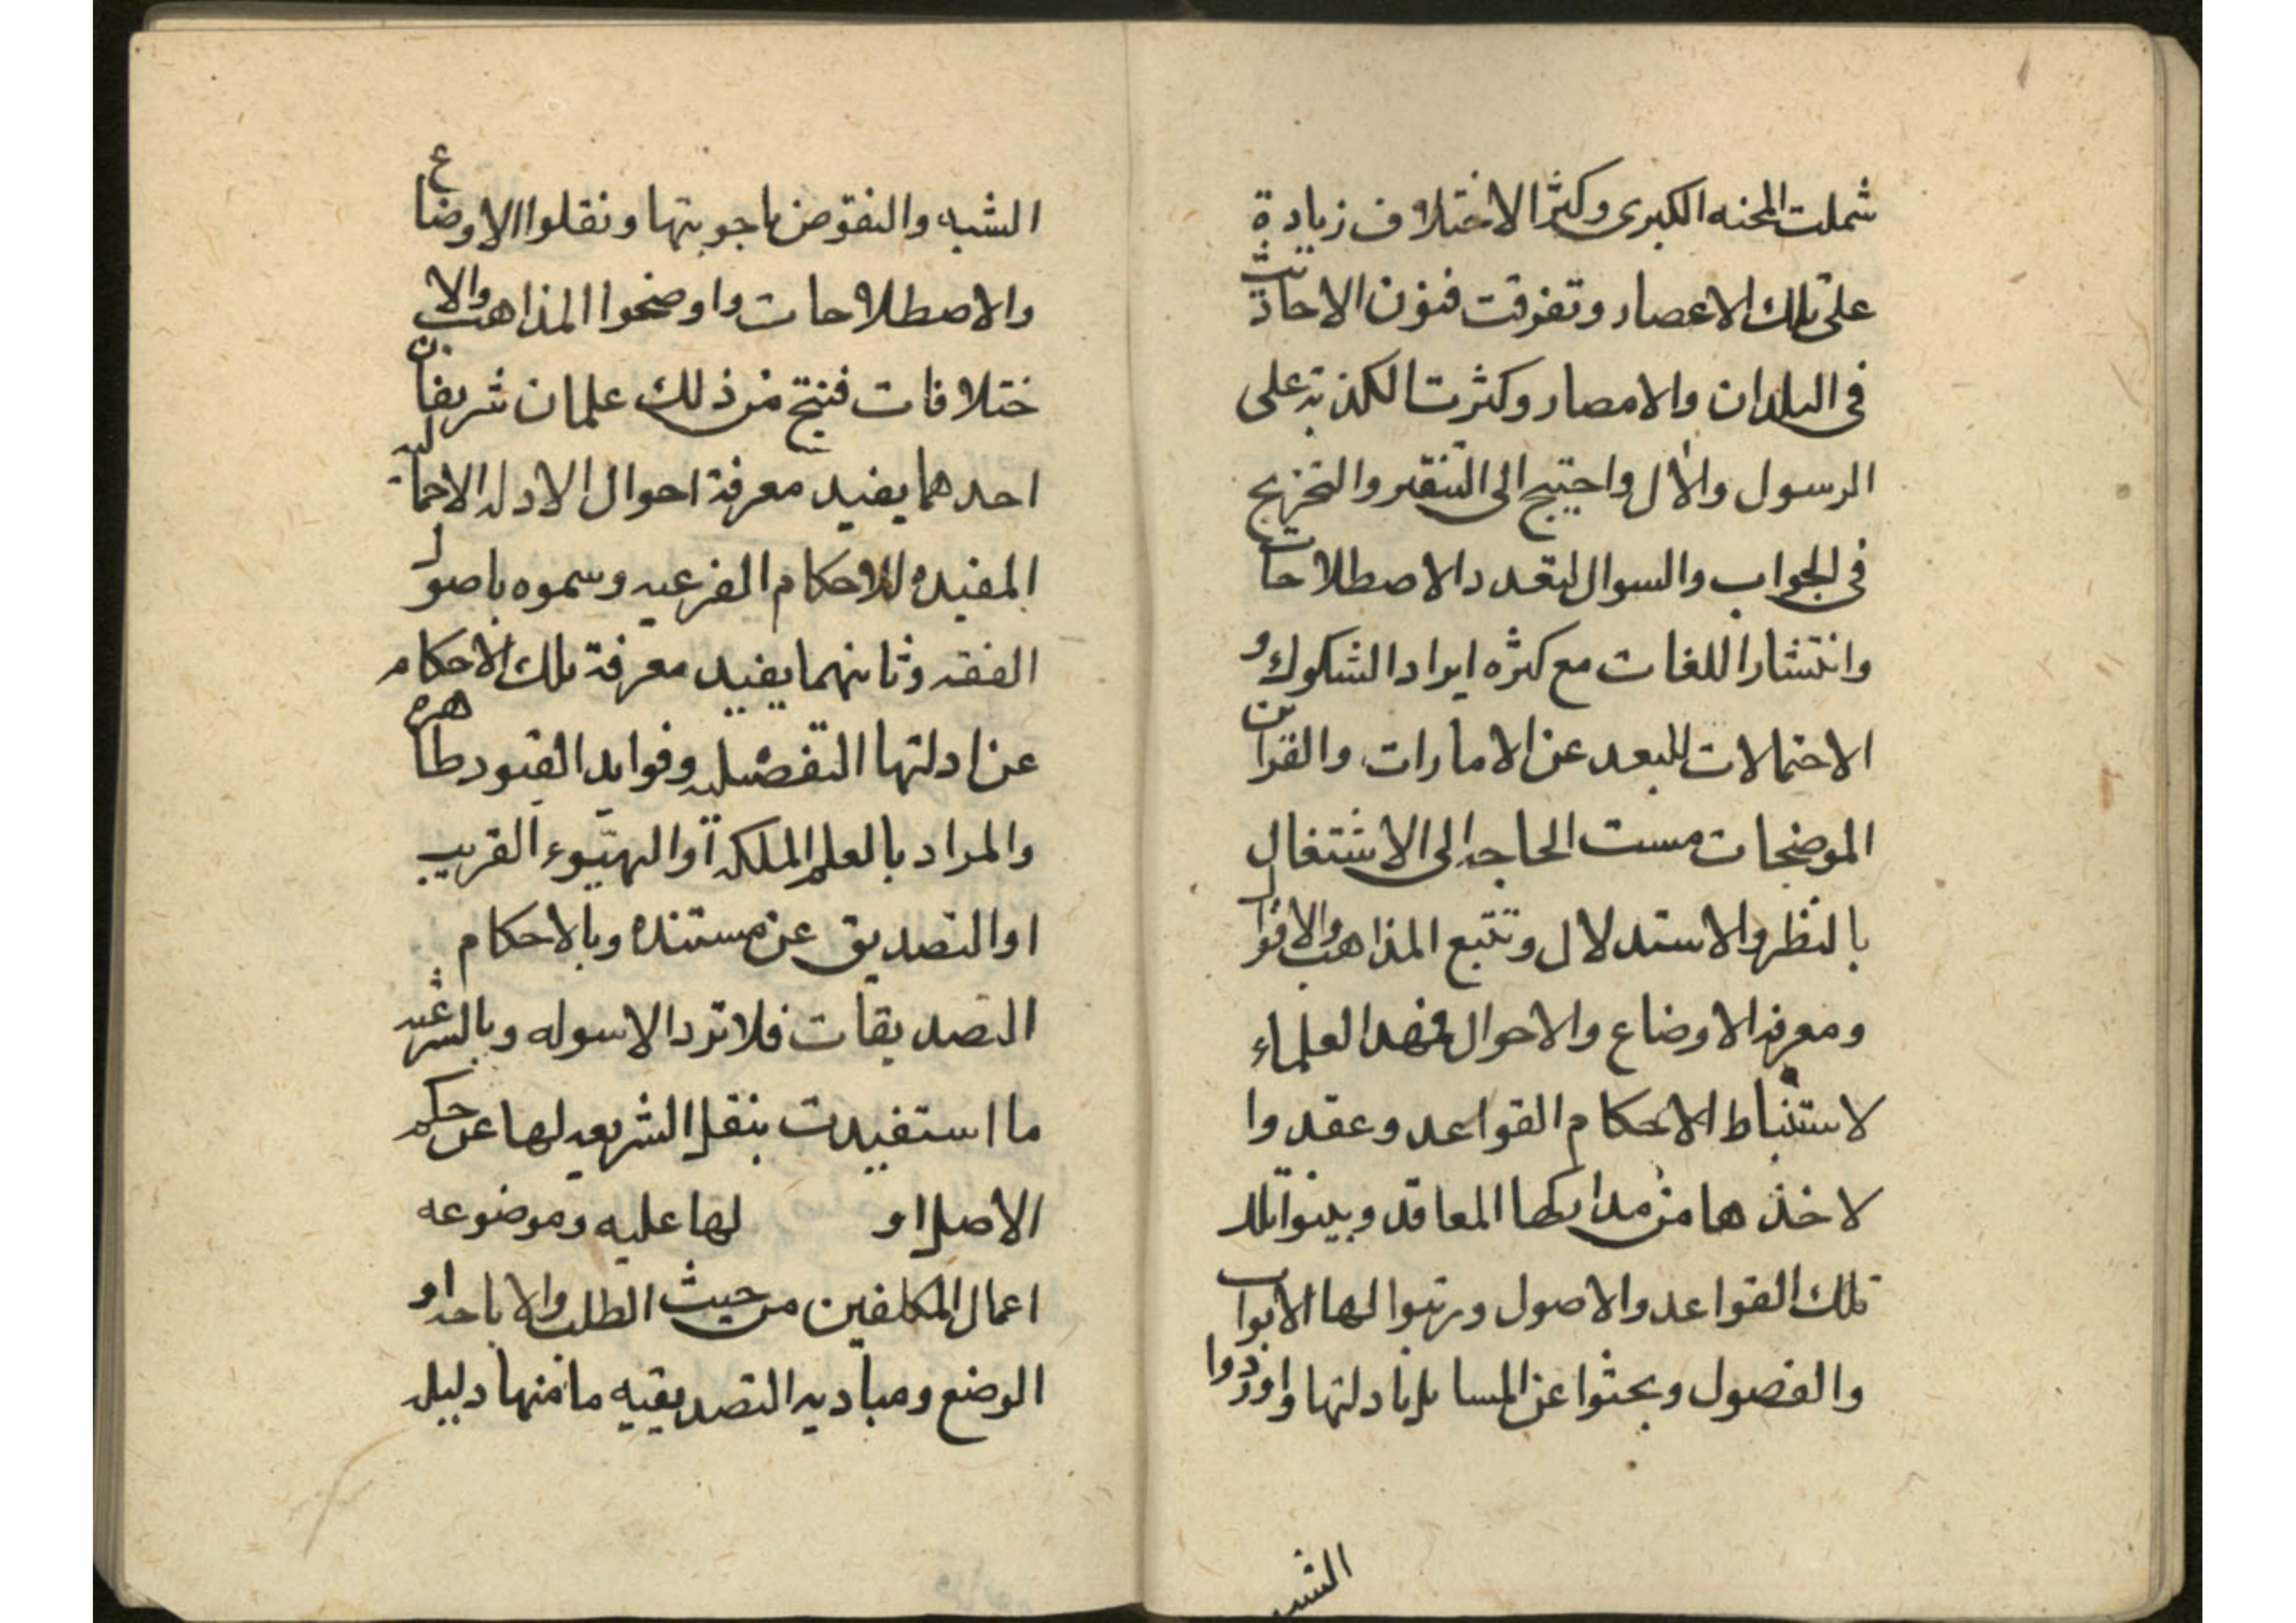 شملت المحنه الكبرى وكثر الاختلاف زيادة
على تلك الاعصار وتفرقت فنون الاحاديث
فى البلدان والامصار وكثرت الكذبة على
الرسول والال واحتيج الى التنقير والتخريج
فى الجواب والسوال لتعدد الاصطلاحات
وانتشار اللغات مع كثره ايراد الشكوك و
الاحتمالات للبعد عن الامارات والقراين
الموضحات مست الحاجه الى الاشتغال
بالنظر والاستدلال وتتبع المذاهب والاقوال
ومعرفة الاوضاع والاحوال فمهد العلماء
لاستنباط الاحكام القواعد وعقدوا
لاخذها من مداركها المعاقد وبينوا تلك
تلك القواعد والاصول ورتبوا لها الابواب
والفصول وبحثوا عن المسايل بادلتها واوردوا
الشبه
الشبه والنقوض باجوبتها ونقلوا الاوضاع
والاصطلاحات واوضحوا المذاهب والا
ختلافات فنتج من ذلك علمان شريفان
احدهما يفيد معرفة احوال الادله الاجماليه
المفيده للاحكام الفرعيه وسموه باصول
الفقه وثانيهما يفيد معرفة تلك الاحكام
عن ادلتها التفصيليه وفوايد القيود ظاهره
والمراد بالعلم الملكه او التهيوء القريب
او التصديق عن مستنده وبالاحكام
التصديقات فلا ترد الاسوله وبالشرعيه
ما استفيدت بنقل الشريعه لها عن حكم
الاصل او لها عليه وموضوعه
اعمال المكلفين من حيث الطلب والاباحه او
الوضع ومباديه التصديقيه ما منها دليل